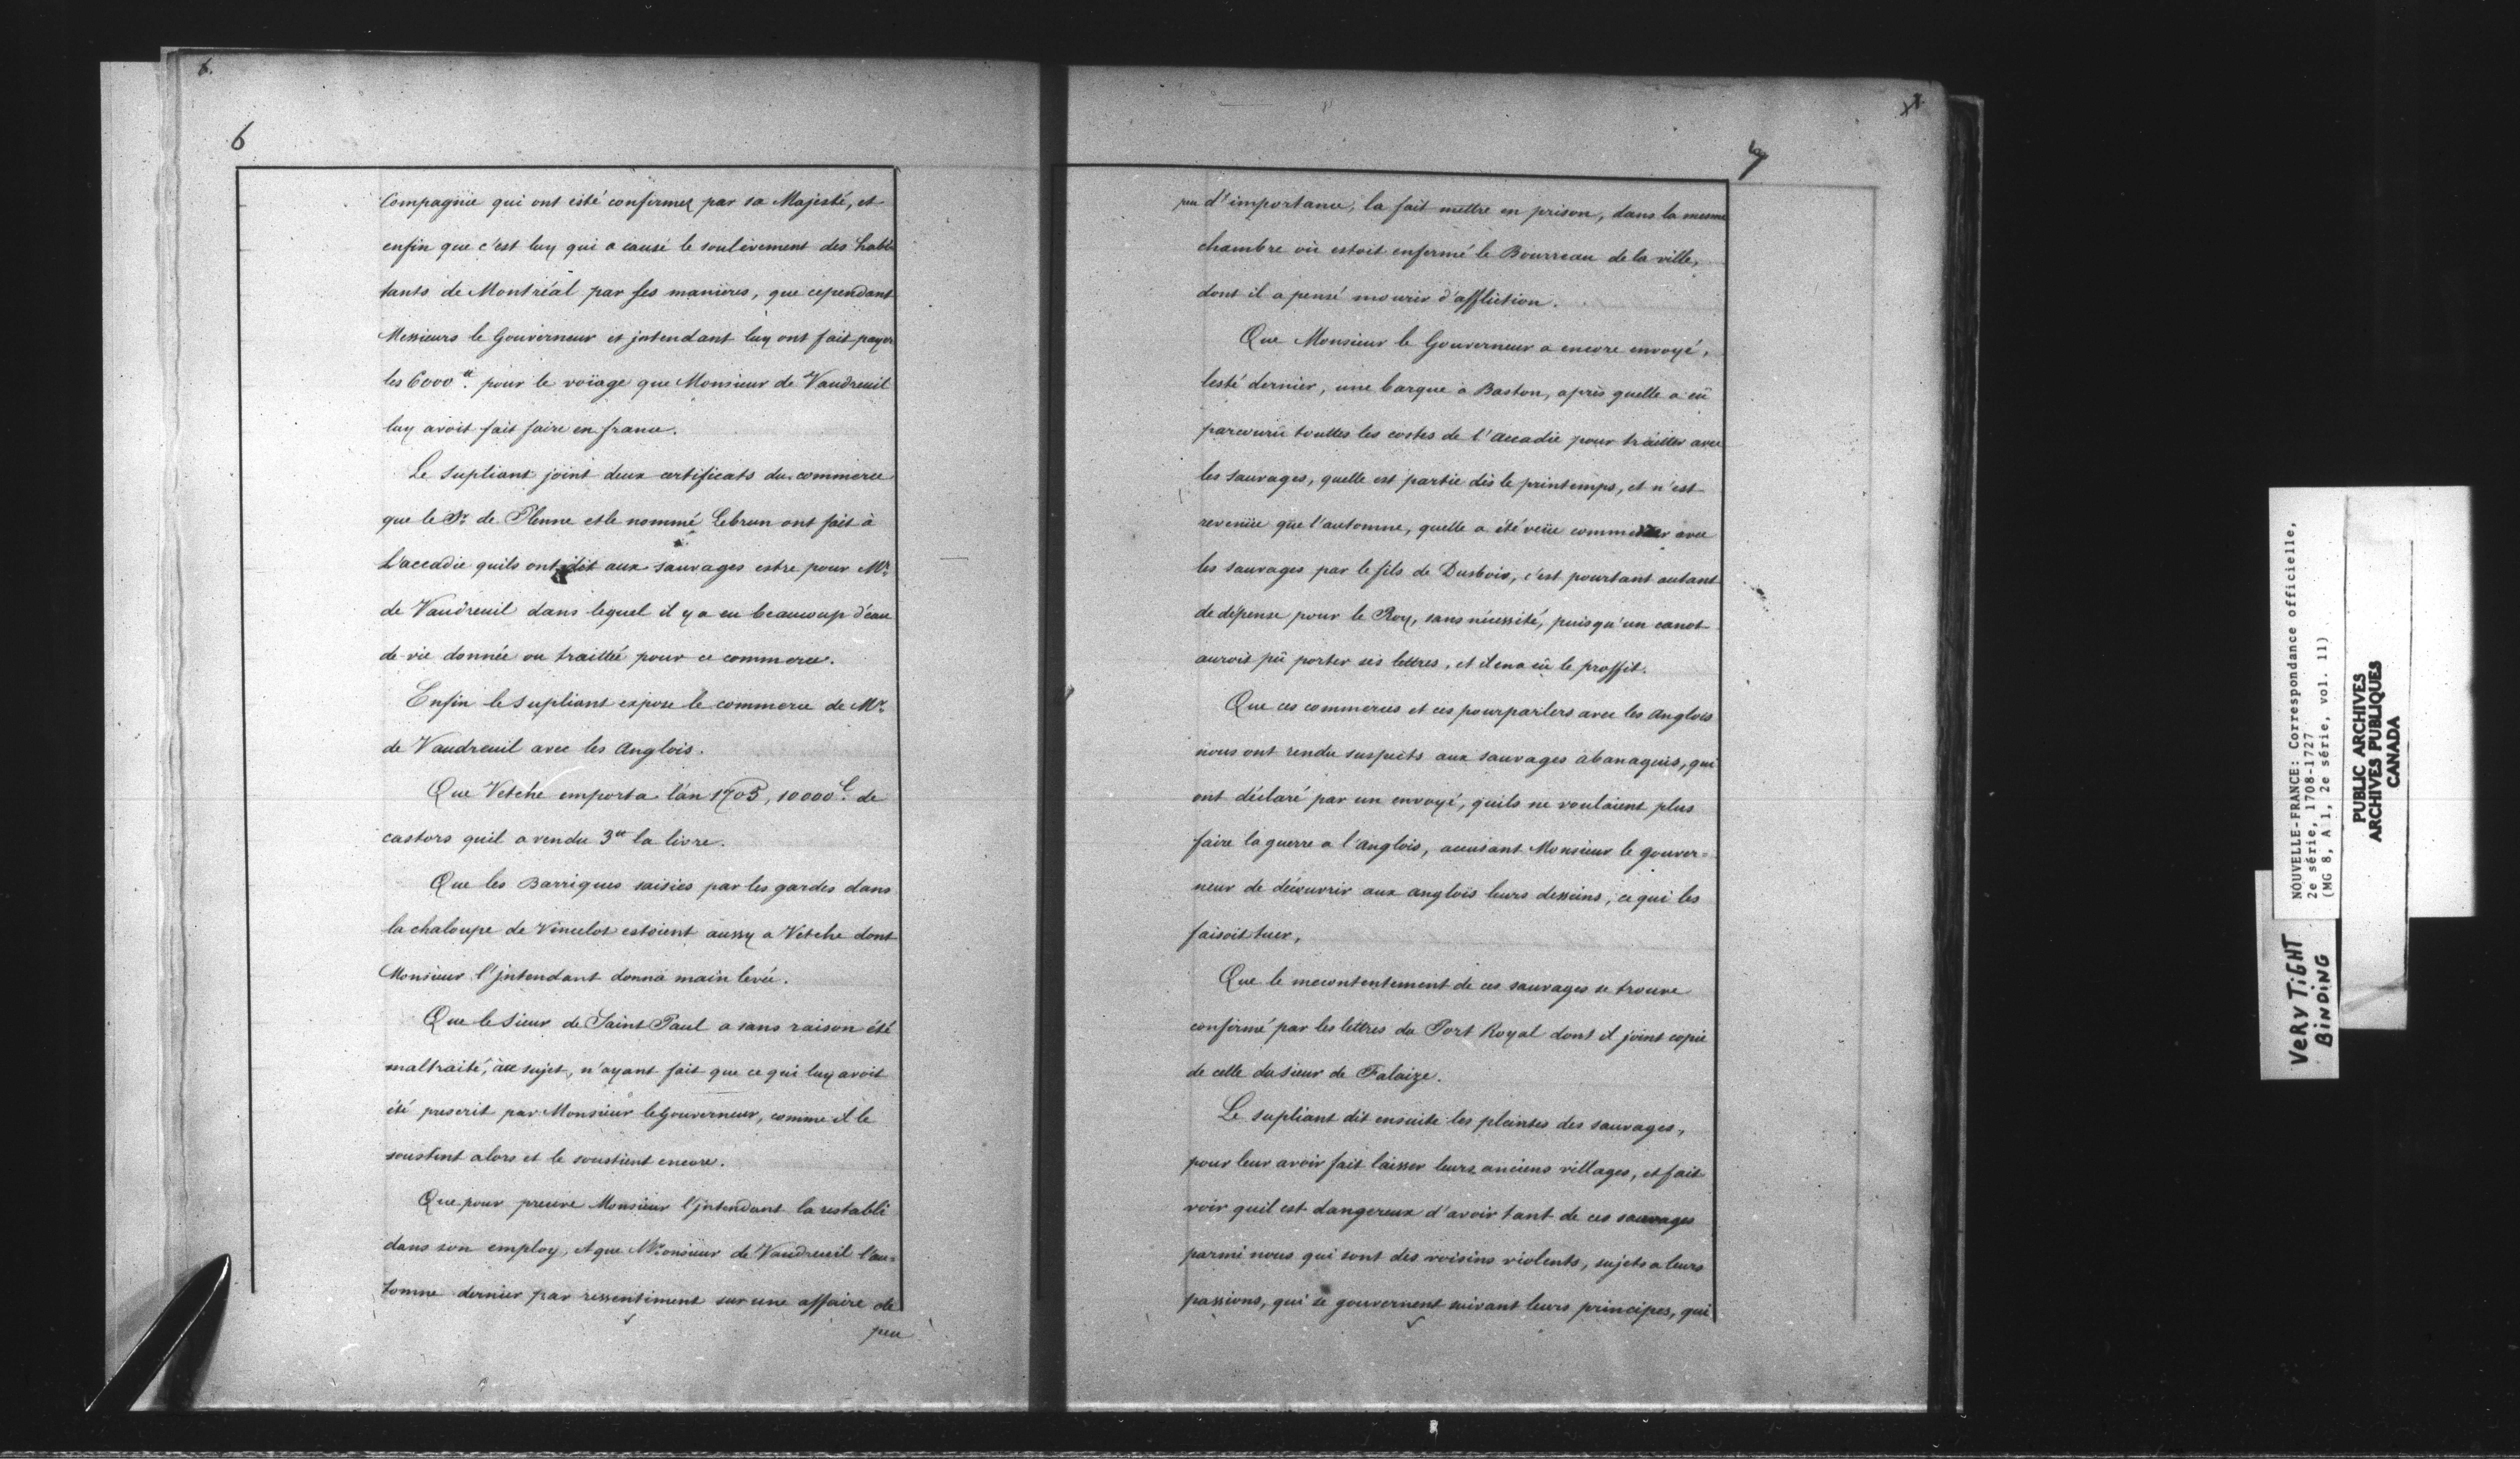 6.
6
Compagnie qui ont esté confirmez par sa Majesté, et
enfin que c'est luy qui a causé le soulevement des habi
tants de Montréal par ses manieres, que cependant
Messieurs le Gouverneur et jntendant luy ont fait payer
les 6000tt. pour le voiage que Monsieur de Vaudreuil
luy avoit fait faire en france.
Le supliant joint deux certificats du commerce
que le Sr. de Plenne et le nommé Lebrun ont fait à
L'accadie quils ont dit aux sauvages estre pour Mr.
de Vaudreuil dans lequel il y a eu beaucoup d'eau
de vie donnée ou traittée pour ce commerce.
Enfin le supliant expose le commerce de Mr.
de Vaudreuil avec les Anglois.
Que Vetche emporta l'an 1705, 10000l. de
castors quil a vendu 3tt la livre.
Que les Barriques saisies par les gardes dans
la chaloupe de Vincelot estoient aussy a Vetche dont
Monsieur l'jntendant donna main levée.
Que le sieur de Saint Paul a sans raison été
maltraité, à ce sujet, n'ayant fait que ce qui luy avoit
été prescrit par Monsieur le Gouverneur, comme il le
soustint alors et le soustient encore.
Que pour preuve Monsieur l'jntendant la restabli
dans son employ, et que Monsieur de Vaudreuil l'au=
tomne dernier par ressentiment sur une affaire de
peu
7
peu d'importance, la fait mettre en prison, dans la mesme
chambre où estoit enfermé le Bourreau de la ville,
dont il a pensé mourir d'affliction.
Que Monsieur le Gouverneur a encore envoyé,
lesté dernier, une barque a Baston, après quelle a eü
parcouru touttes les costes de l'accadie pour traitter avec
les sauvages, quelle est partie dès le printemps, et n'est
revenüe que l'automne, quelle a été veüe commercer avec
les sauvages par le fils de Dusbois, c'est pourtant autant
de dépense pour le Roy, sans nécessité, puisqu'un canot
auroit pü porter ses lettres, et il en a eü le proffit.
Que ces commerces et ces pourparlers avec les Anglois
nous ont rendu suspects aux sauvages abanaquis, qui
ont déclaré par un envoyé, quils ne voulaient plus
faire la guerre a l'Anglois, accusant Monsieur le gouver=
neur de découvrir aux anglois leurs desseins, ce qui les
faisoit tuer,
Que le mecontentement de ces sauvages se trouve
confirmé par les lettres du Port Royal dont il joint copie
de celle du sieur de Falaize.
Le supliant dit ensuite les plaintes des sauvages,
pour leur avoir fait laisser leurs anciens villages, et fait
voir quil est dangereux d'avoir tant de ces sauvages
parmi nous qui sont des voisins violents, sujets a leurs
passions, qui se gouvernent suivant leurs principes, qui
VERY TiGHT
BiNDiNG
NOUVELLE-FRANCE: Correspondance officielle,
2e série, 1708-1727
(MG 8, A 1, 2e série, vol. 11)
PUBLIC ARCHIVES
ARCHIVES PUBLIQUES
CANADA